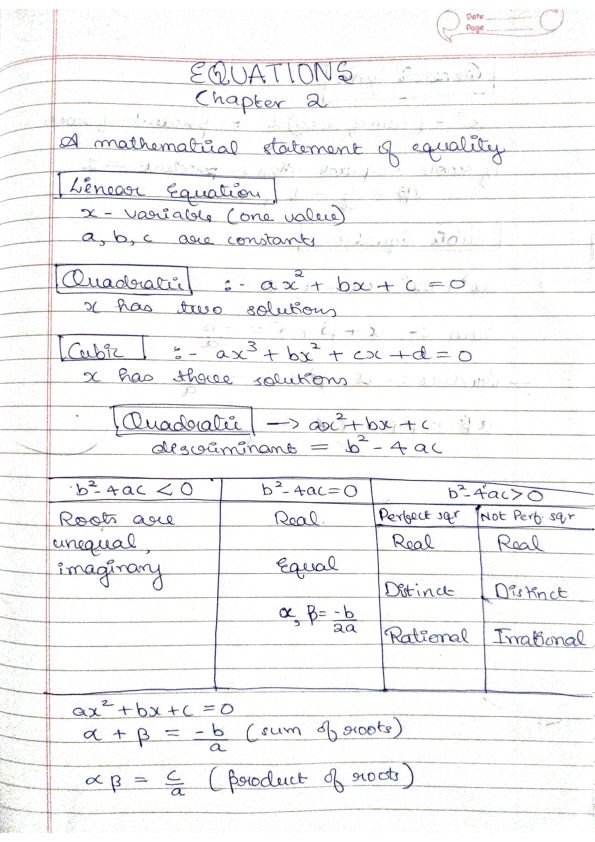 Date
Page
EQUATIONS
Chapter 2
A mathematical statement of equality
Linear Equation
x - variable (one value)
a, b, c are constants
Quadratic :- ax² + bx + c = 0
x has two solutions
Cubic :- ax³ + bx² + cx + d = 0
x has three solutions
Quadratic → ax² + bx + c
discriminant = b² - 4ac
b² - 4ac < 0 b² - 4ac = 0 b² - 4ac > 0
Perfect sqr Not Perf. sqr
Roots are Real Real Real
unequal,
imaginary Equal Distinct Distinct
α, β = -b/2a Rational Irrational
ax² + bx + c = 0
α + β = -b/a (sum of roots)
αβ = c/a (product of roots)